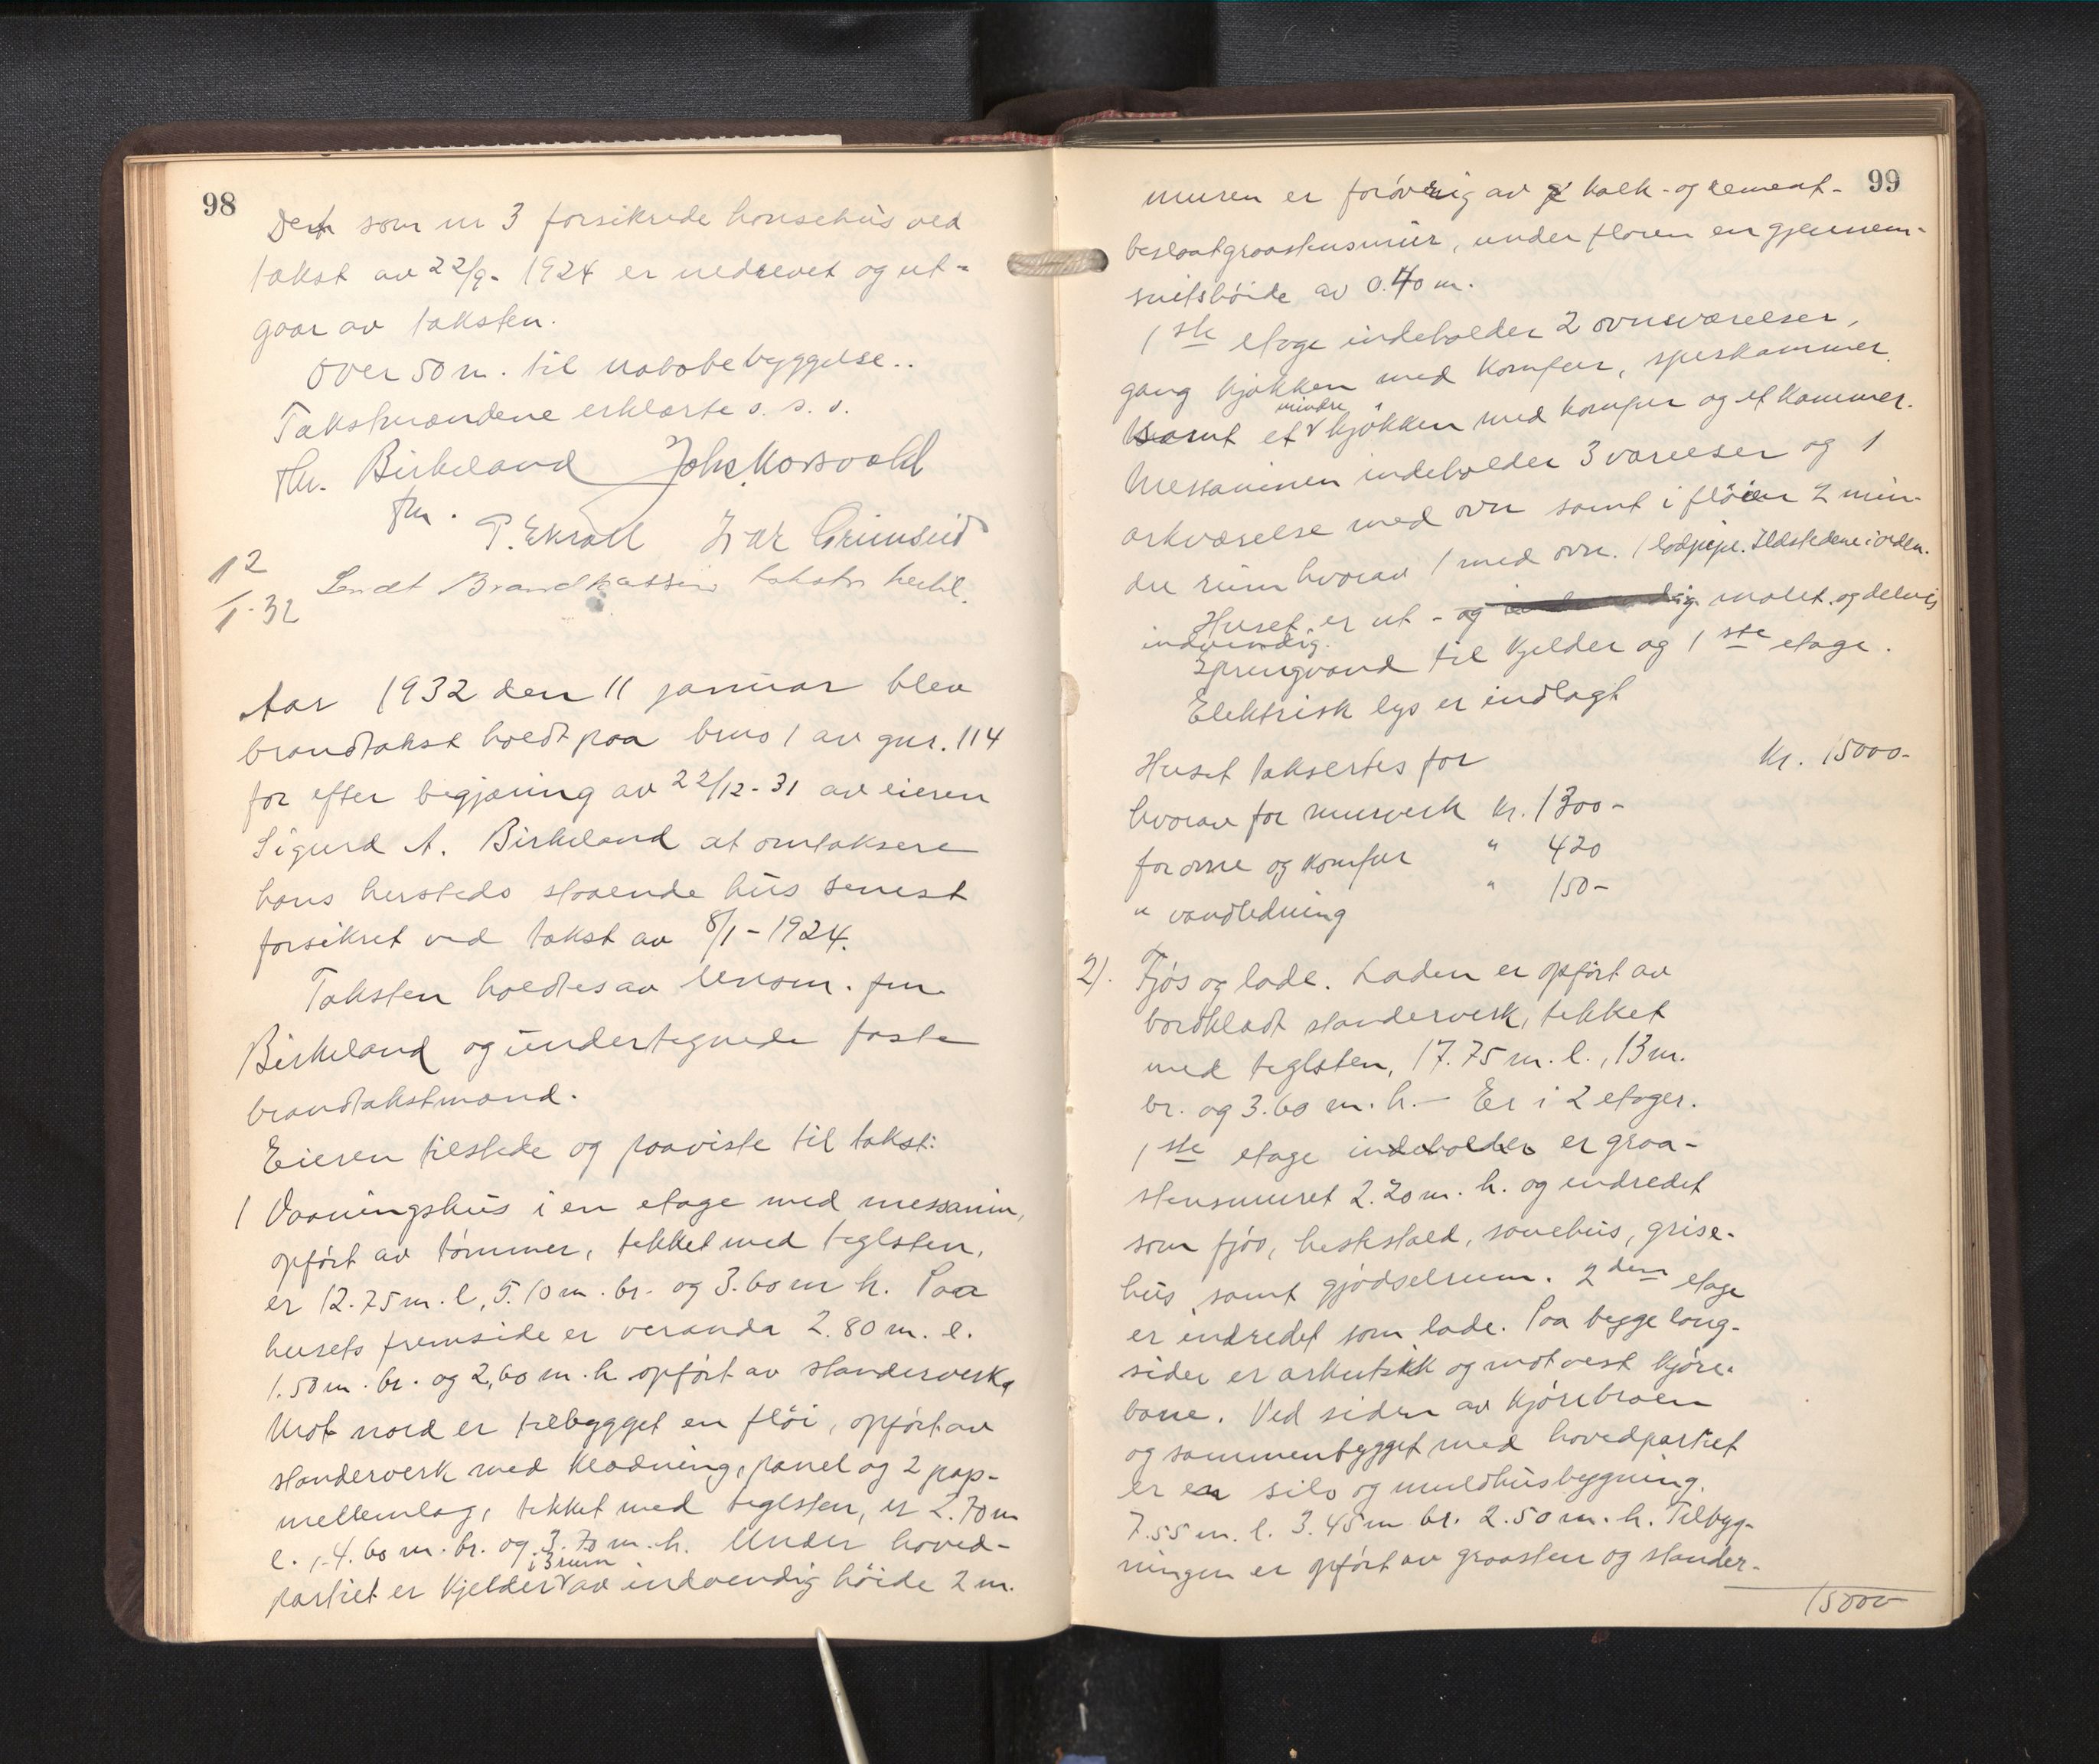 98
Det som nr 3 forsikrede hønsehus ved
takst av 22/9- 1924 er nedrevet og ut-
gaar av taksten.
Over 50 m. til nabobebyggelse..
Takstmændene erklærte s. s. s.
fhv. Birkeland Johs. Korsvold
fhv. P. Ekroll Ivar Grimseid
12/1-32 Sendt Brandkassen taksten hertil.
Aar 1932 den 11 januar blev
brandtakst holdt paa bruo 1 av gnr. 114
for efter begjæring av 22/12-31 av eieren
Sigurd A. Birkeland at omtaksere
hans hersteds staaende hus senest
forsikret ved takst av 8/1-1924.
Taksten holdtes av lensm. fm.
Birkeland og undertegnede faste
brandtakstmænd.
Eieren tilstede og paaviste til takst:
1 Vaaningshus i en etage med messanin,
opført av tømmer, tekket med teglsten,
er 12.75 m. l, 5.10 m. br. og 3.60 m h. Paa
husets fremside er veranda 2.80 m. l.
1.50 m. br. og 2,60 m. h opført av standerverk
Mot nord er tilbygget en fløi, opført av
standerverk med klædning, panel og 2 pap-
mellemlag, tekket med teglsten, er 2.70 m
l., 4.60 m. br. og 3.70 m. h. Under hoved-
i 3 rum
partiet er kjelder av indvendig høide 2 m.
99
muren er forøvrig av kalk- og cement-
beslaatgraastensmur, under fløien en gjennem-
snitshøide av 0.40 m.
1ste etage indeholder 2 ovnsværelser,
gang kjøkken med komfur, spiskammer
mindre
samt et kjøkken med komfur og et kammer.
Messaninen indeholder 3 værelser og 1
arkværelse med ovn samt i fløien 2 min-
dre rum hvorav 1 med ovn. 1 lodpipe. Ildstedene i orden.
Huset er ut - og indvendig malet og delvis
indvendig.
Springvand til kjelder og 1ste etage.
Elektrisk lys er indlagt
Huset takseres for kr. 15000-
hvorav for murverk kr. 1300-
for ovne og komfur " 420
" vandledning " 150-
2). Fjøs og lade. Laden er opført av
bordklædt standerverk, tekket
med teglsten, 17.75 m. l., 13 m.
br. og 3.60 m. h. — Er i 2 etager.
1ste etage indeholder er graa-
stensmuret 2.20 m. h. og indredet
som fjøs, heststald, sauehus, grise-
hus samt gjødselrum. 2den etage
er indredet som lade. Paa begge lang-
sider er arkutstik og mot vest kjøre-
bane. Ved siden av kjørebroen
og sammenbygget med hovedpartiet
er en silo og muldhusbygning.
7.55 m. l. 3.45 m br. 2.50 m. h. Tilbyg-
ningen er opført av graasten og stander-
15000